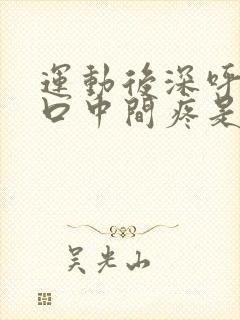 運動後深呼
口中間疼是
吴光山